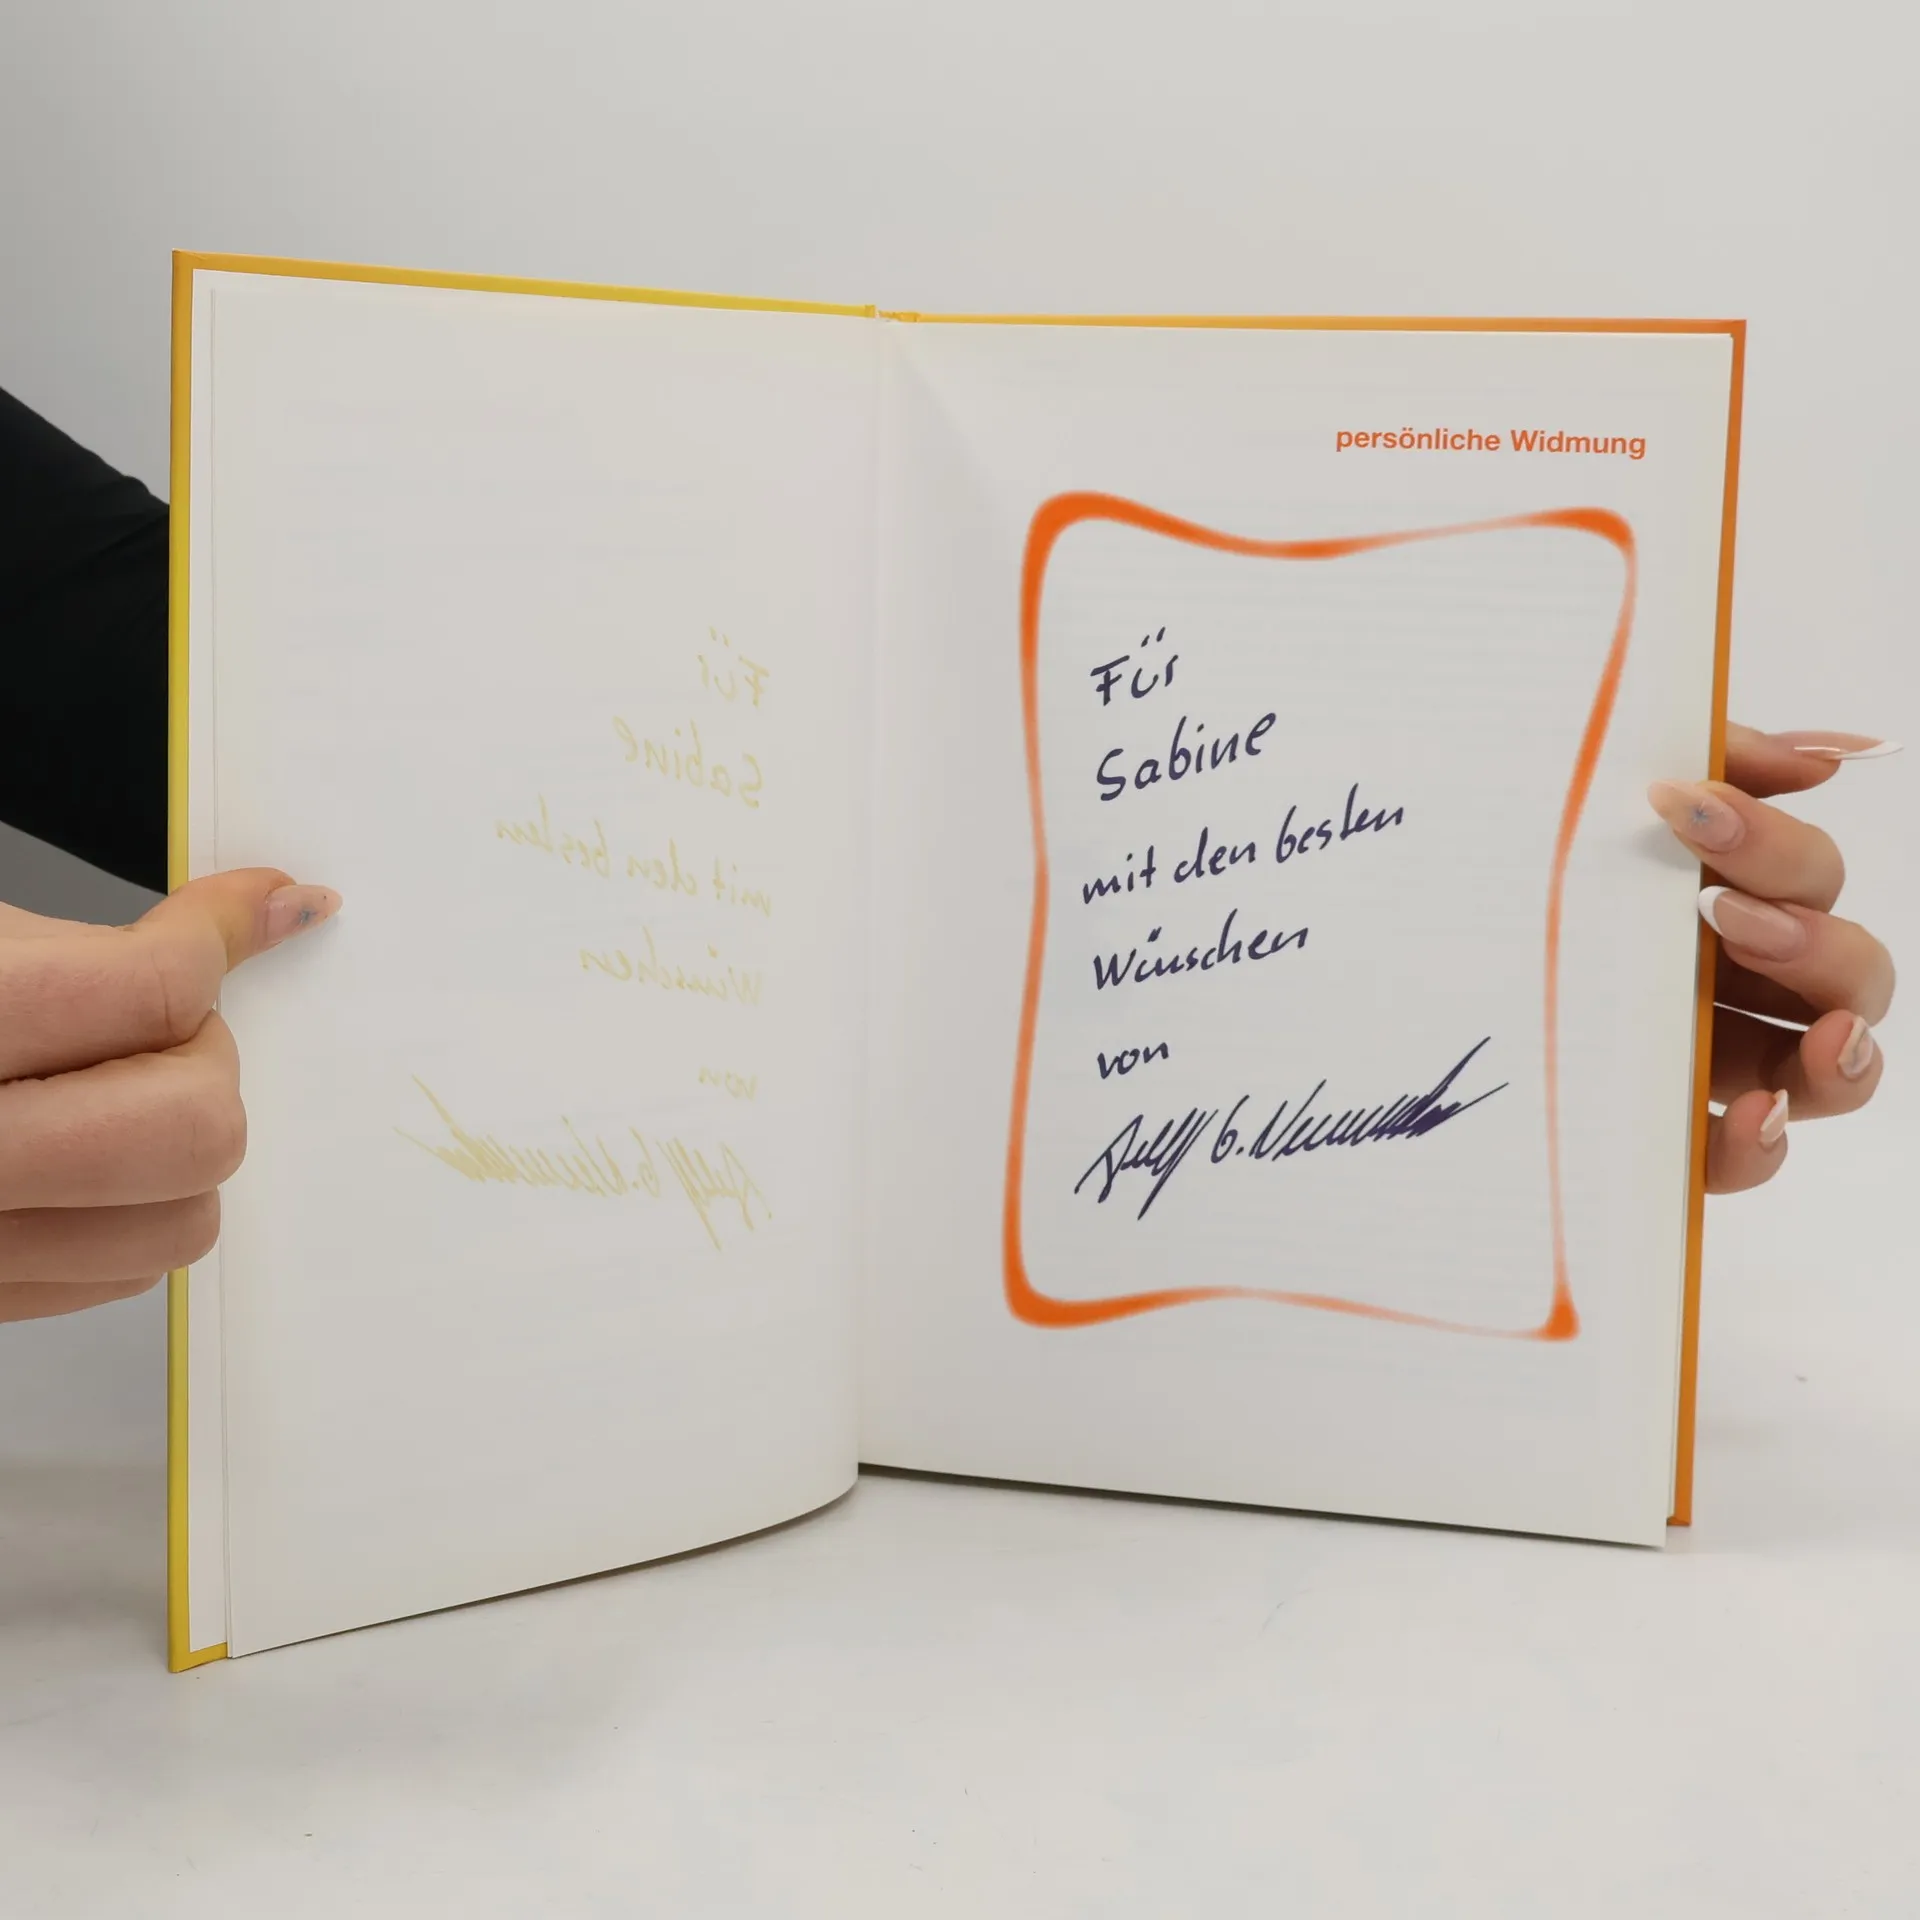 persönliche Widmung
Für
Sabine
mit den besten
Wünschen
von
G.